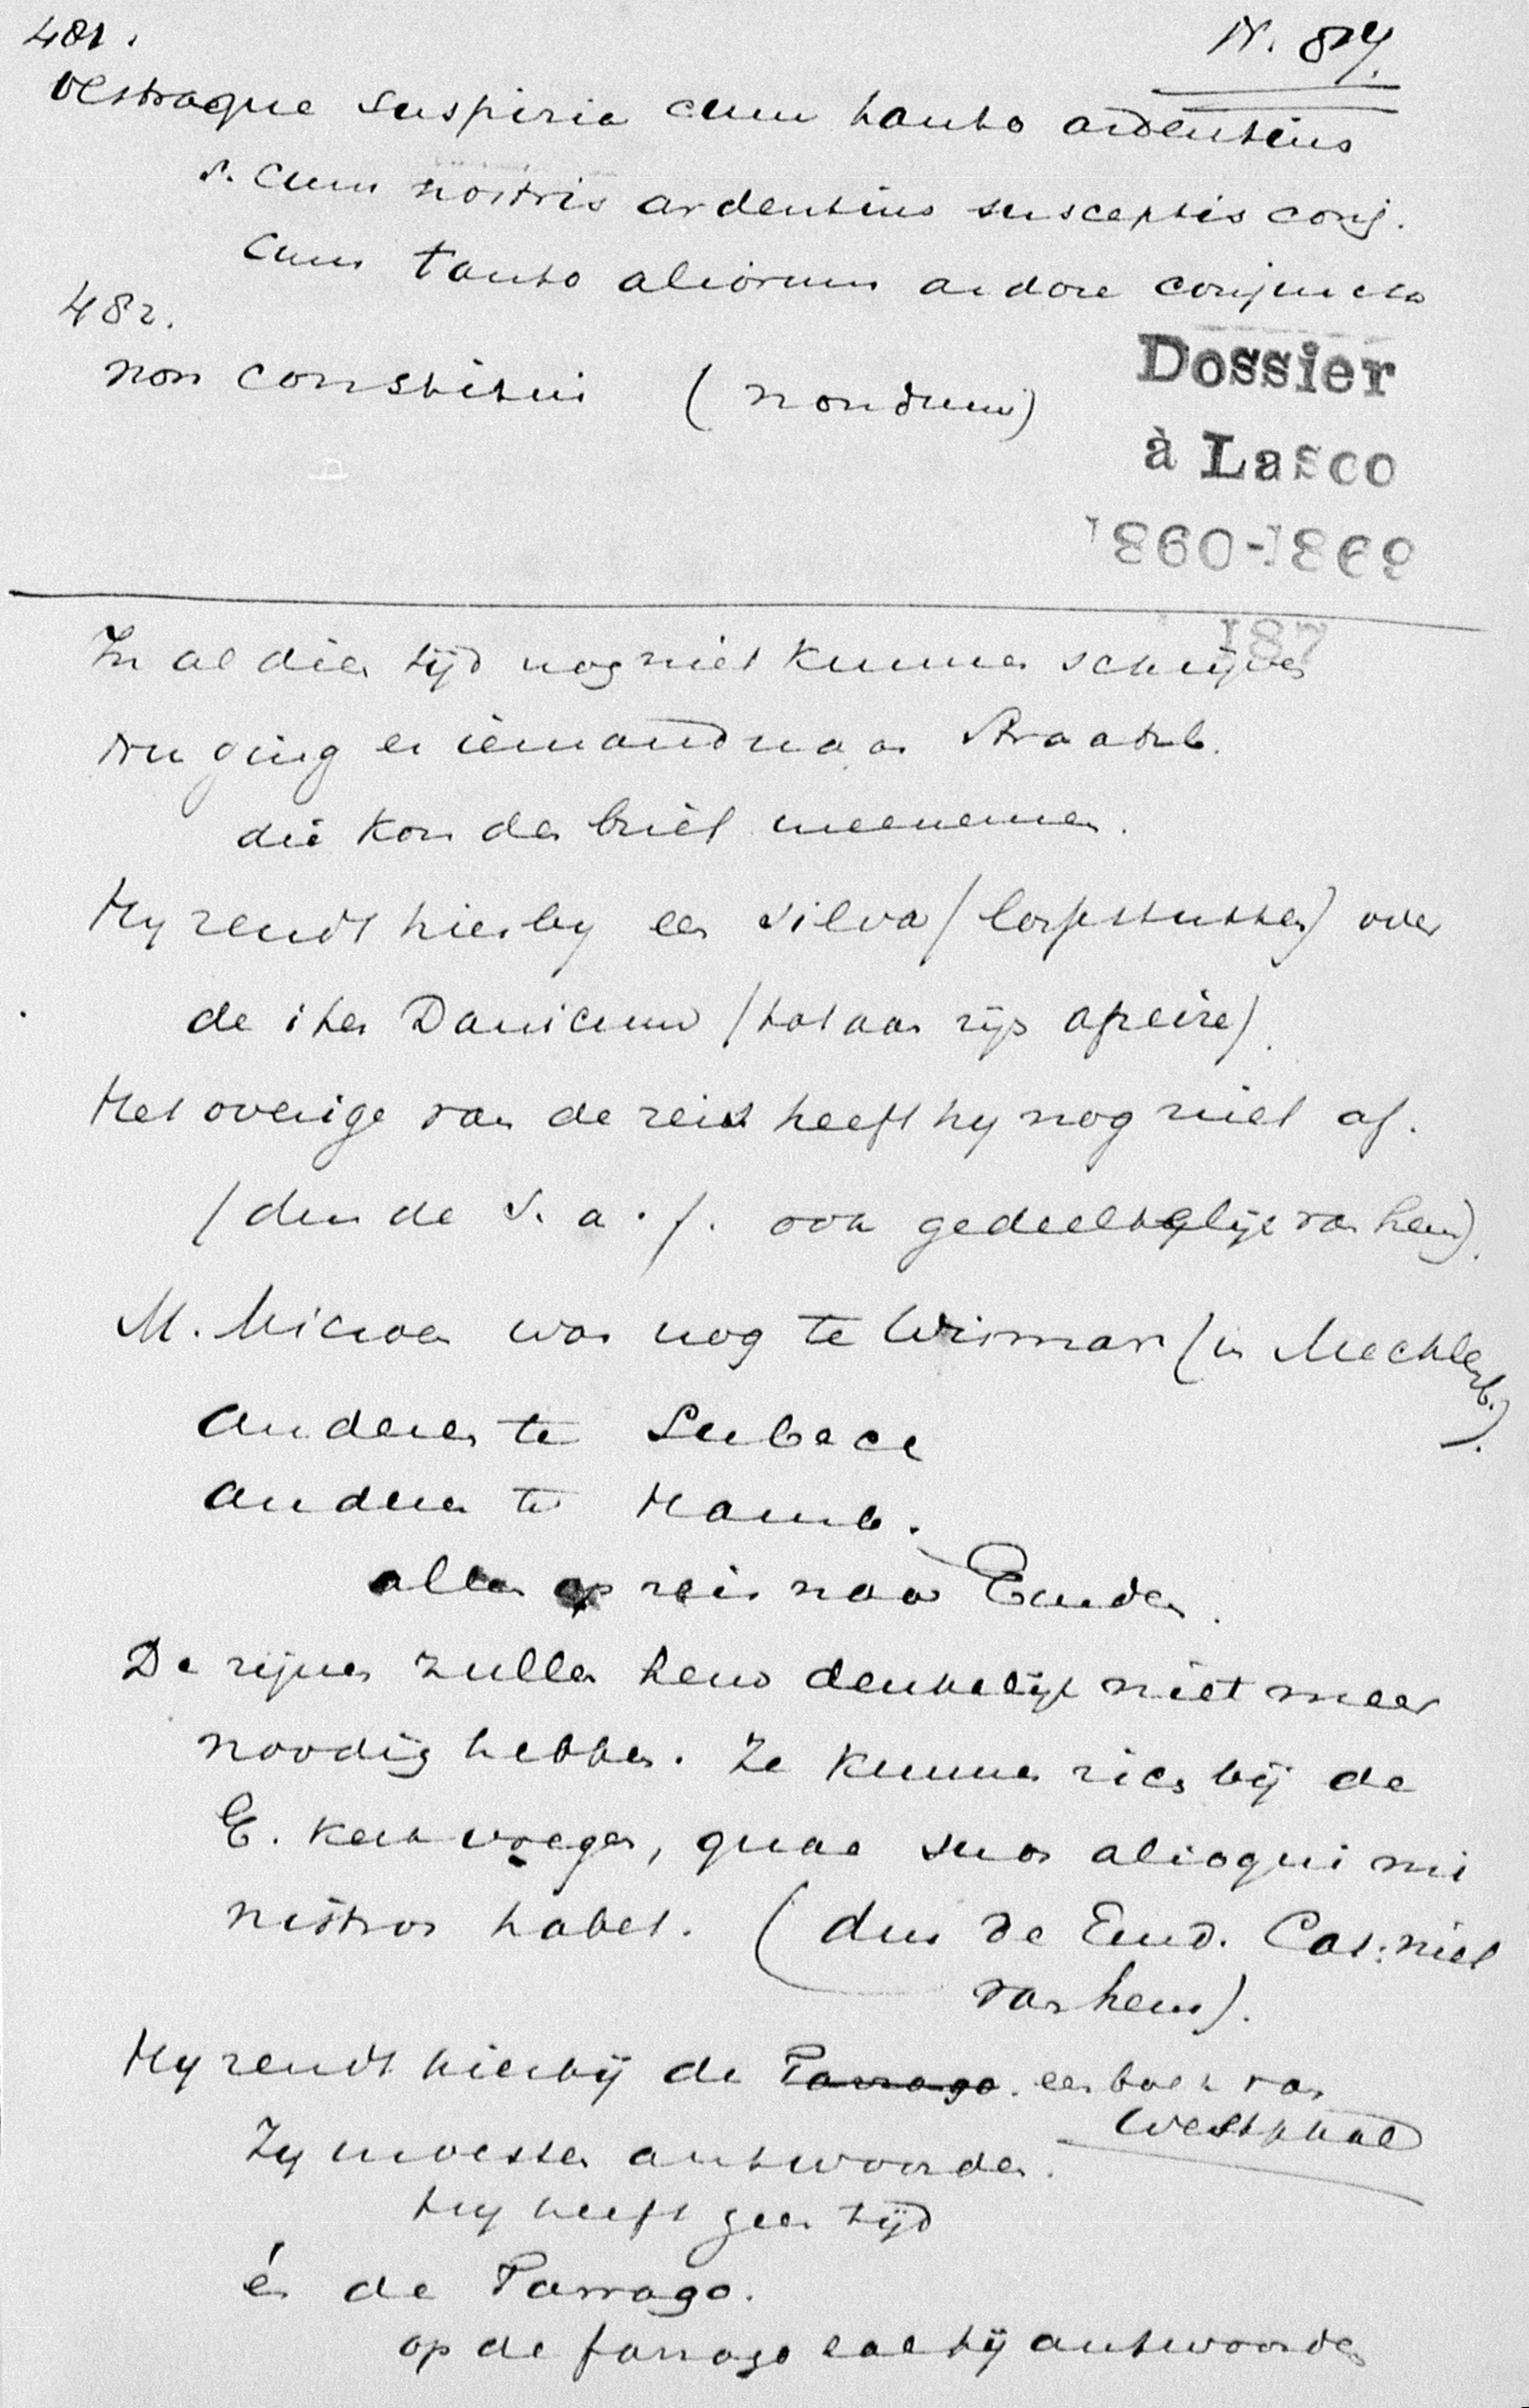 481.
N. 84.
vestraque suspiria cum tanto ardentius
s. cum nostris ardentius susceptis conj.
cum tanto aliorum ardore conjuncta
482.
non constitui (nondum)
Dossier
à Lasco
1860-1869
187
In al dien tijd nog niet kunnen schrijven
Nu ging er iemand naar Straatsb.
die kon den brief meenemen.
Hy zendt hierby een silva / over
de iter Danicum / tot aan zijn afreize)
Het overige van de reis heeft hy nog niet af.
/ dus de S. a. f. ook gedeeltelijk van hem).
M. Micron was nog te Wismar (in Mecklenb.)
anderen te Lubeck
anderen te Hamb.
allen op reis naar Emden.
De zijnen zullen hem denkelijk niet meer
noodig hebben. Ze kunnen zich bij de
E. kerk voegen, quae suos alioqui mi
nistros habet. (dus de Emd. Cat. niet
van hem).
Hy zendt hierbij de Farrago. een boek van
Westphal
Zy moesten antwoorden.
Hy heeft geen tijd
én de Farrago.
op de farrago zal hij antwoorden